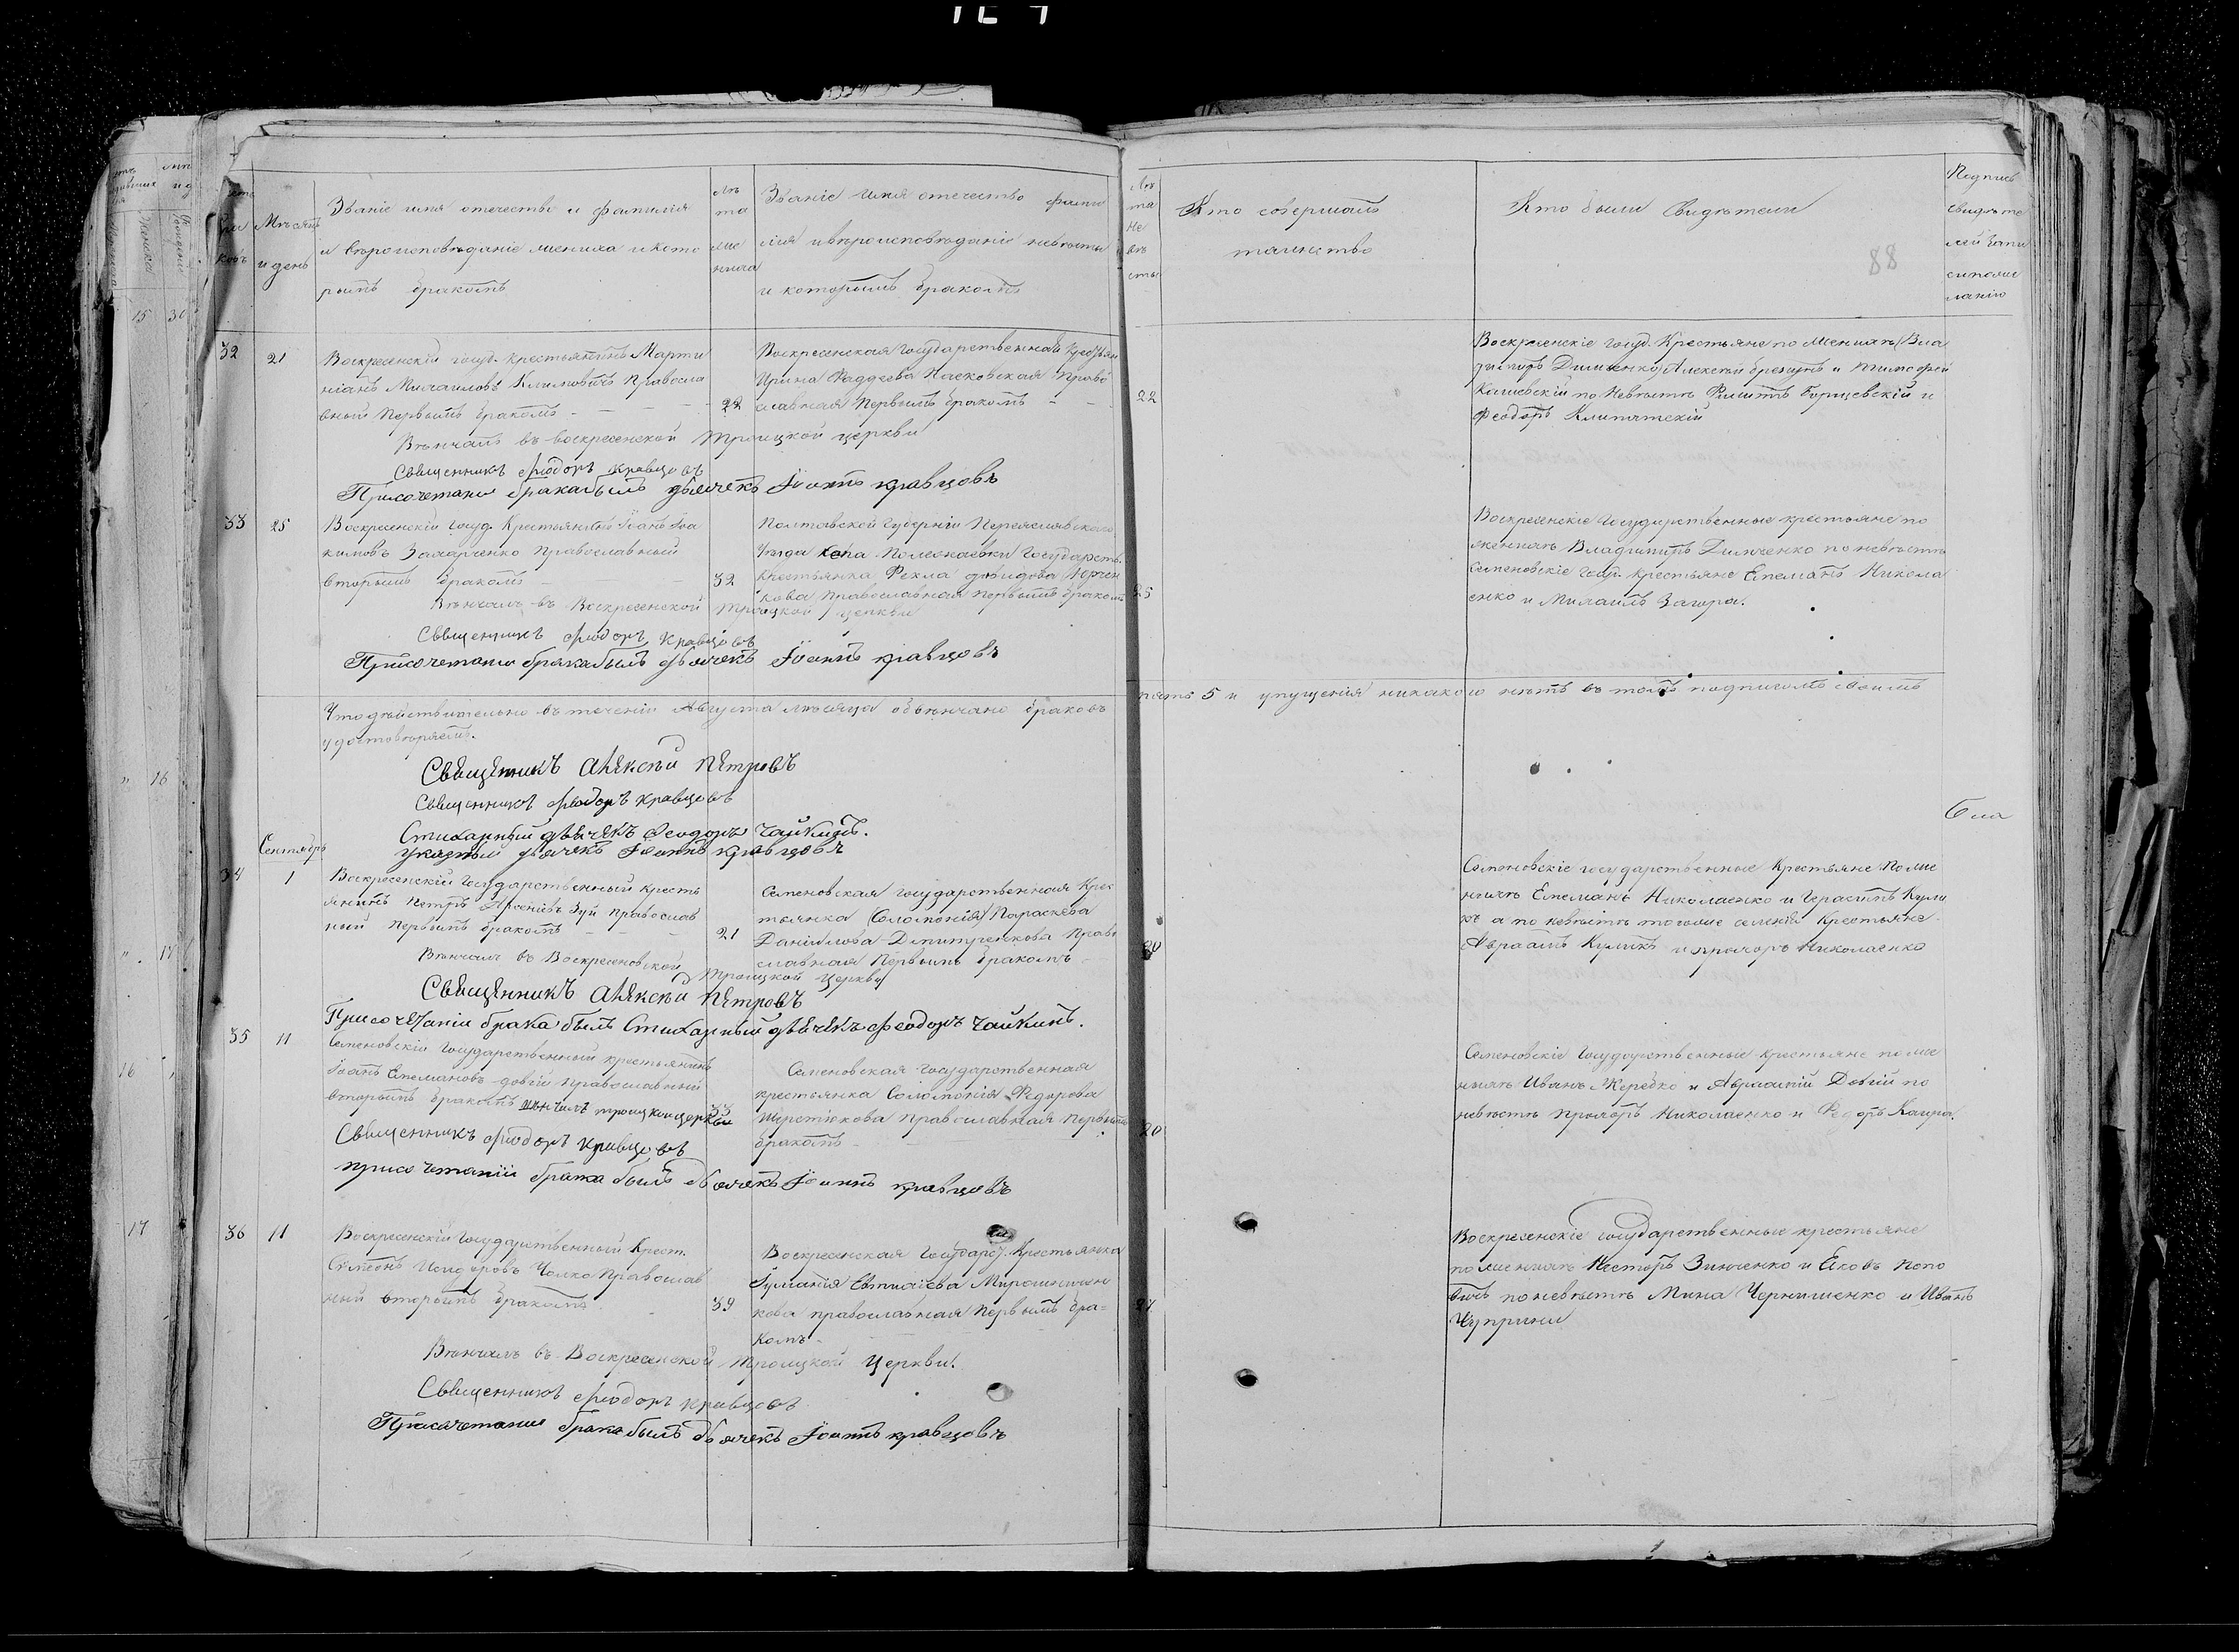 88
Мѣсяцъ
и день
Званіе имя отечество и фамилія
и вѣроисповѣданіе жениха и кото
рымъ бракомъ
Лѣ
та
же
ниха
Званіе имя отечество фами
лія и вѣроисповѣданіе невѣсты
и которымъ бракомъ
Лѣ
та
не
вѣ
сты
Кто совершалъ
таинство
Кто были свидѣтели
Подпись
свидѣте
лей запи
си по же
ланію
32
21
Воскресенскій госуд. крестьянинъ Марти
ніанъ Михаиловъ Климовичъ правосла
вный первымъ бракомъ
22
Воскресенская государственная крестьян
Ирина Фаддеева Пасковская право
славная первымъ бракомъ
22
Воскресенскіе госуд. крестьяне по женихѣ Вла
димиръ Димченко Алексѣй и Тимофей
Кашевскій по невѣстѣ Филипъ Борщевскій и
Феодоръ
Вѣнчалъ въ воскресенской Троицкой церкви
Священникъ Фиодоръ Кравцовъ
При сочетании брака былъ дьячекъ Іоаннъ Кравцовъ
33
25
Воскресенскій госуд. крестьянинъ Іоанъ Іоа
кимовъ Захарченко православный
вторымъ бракомъ
32
Полтавской губерніи Переяславскаго
уѣзда села государств.
крестьянка Фекла Давидова Юрчен
кова православная первымъ бракомъ
25
Воскресенскіе государственные крестьяне по
женихѣ Владимиръ Димченко по невѣстѣ
Семеновскіе госуд. крестьяне Емелианъ Никола
енко и Михаилъ Загора.
Вѣнчалъ въ Воскресенской Троицкой церкви
Священникъ Фиодоръ Кравцовъ
При сочетании брака былъ дьячекъ Іоаннъ Кравцовъ
Что дѣйствительно въ теченіи Августа мѣсяца обвѣнчано браковъ
пять 5 и упущенія никакого нѣтъ въ томъ подписомъ своимъ
удостовѣряемъ.
Священникъ Алексѣй Петровъ
Священникъ Фиодоръ Кравцовъ
Стихарный дьячекъ Феодоръ Чайкинъ.
указный дьячекъ Іоаннъ Кравцовъ
Сентябрь
34
1
Воскресенскій государственный кресть
янинъ Петръ Арсеніевъ Зуй православ
ный первымъ бракомъ
21
Семеновская государственная крес
тьянка (Соломонія) Параскева
Даніилова Дмитренкова право
славная первымъ бракомъ
20
Семеновскіе государственные крестьяне по же
нихѣ Емелианъ Николаенко и Герасимъ Кули
къ а по невѣстѣ того же селенія крестьяне
Авраамъ Куликъ и Николаенко
Вѣнчалъ въ Воскресеновской Троицкой церкви
Священникъ Алексѣй Петровъ
При сочетаніи брака былъ Стихарный дьячекъ Феодоръ Чайкинъ.
35
11
Семеновскій государственный крестьянинъ
Іоанъ Емелиановъ Довгій православный
вторымъ бракомъ вѣнчалъ троицкой церкви
33
Семеновская государственная
крестьянка Соломонія Федорова
Шерстюкова православная первымъ
бракомъ
20
Семеновскіе государственные крестьяне по же
нихѣ Иванъ Жеребко и Довгій по
невѣстѣ Николаенко и Федоръ
Священникъ Фиодоръ Кравцовъ
при сочетаніи брака былъ дьячекъ Іоаннъ Кравцовъ
36
11
Воскресенскій государственный крест.
Симеонъ Исидоровъ Чолко православ
ный вторымъ бракомъ
39
Воскресенская государст. крестьянка
Іуліанія Евтихіева Мирошничен
кова православная первымъ бра=
комъ
27
Воскресенскіе государственные крестьяне
по женихѣ Несторъ Зинченко и Яковъ Попо
вичъ по невѣстѣ Мина Чернишенко и Иванъ
Чуприни
Вѣнчалъ въ Воскресенской Троицкой церкви.
Священникъ Фиодоръ Кравцовъ
При сочетании брака былъ дьячекъ Іоаннъ Кравцовъ